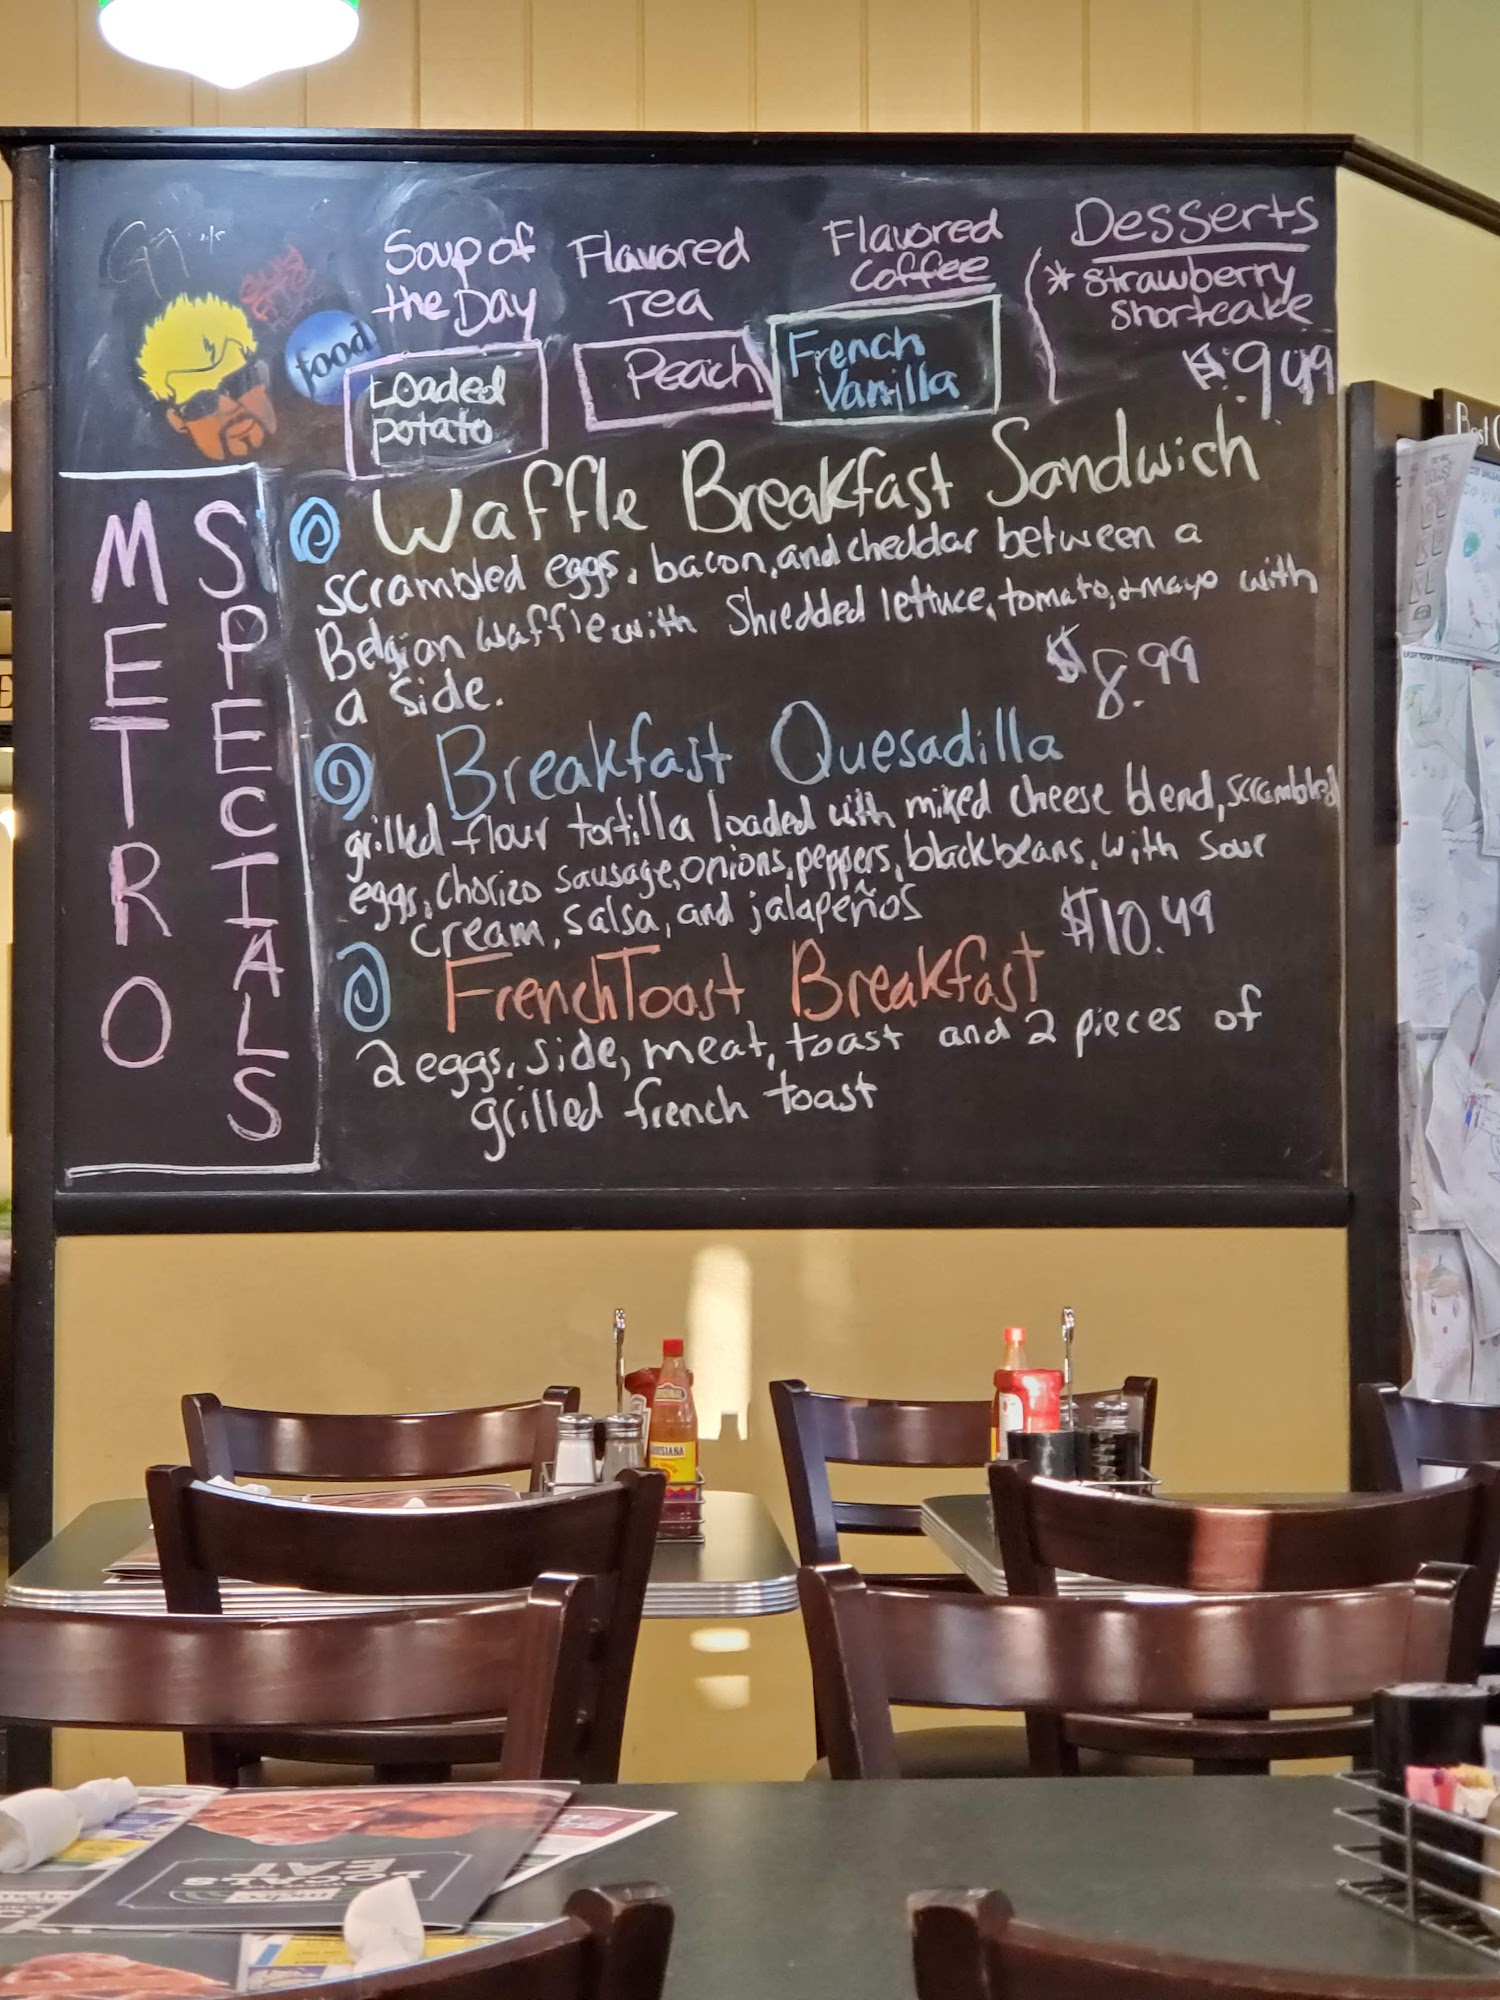 Soup of
the Day
Loaded
potato
Flavored
Tea
Peach
Flavored
Coffee
French
Vanilla
Desserts
* Strawberry
Shortcake
$9.49
food
METRO
SPECIALS
Waffle Breakfast Sandwich
scrambled eggs, bacon, and cheddar between a
Belgian waffle with Shredded lettuce, tomato, + mayo with
a side.
$8.99
Breakfast Quesadilla
grilled flour tortilla loaded with mixed cheese blend, scrambled
eggs, Chorizo sausage, onions, peppers, black beans, with sour
cream, salsa, and jalapeños
$10.49
French Toast Breakfast
2 eggs, side, meat, toast and 2 pieces of
grilled french toast
LOCALS
EAT